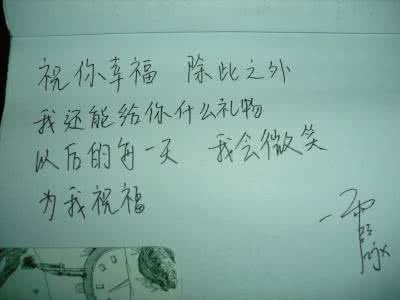 祝你幸福 除此之外
我还能给你什么礼物
以后的每一天 我会微笑
为我祝福